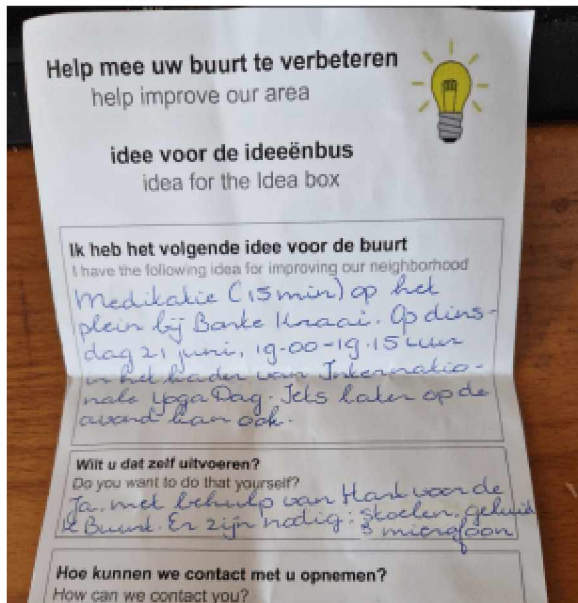 Help mee uw buurt te verbeteren
help improve our area
idee voor de ideeënbus
idea for the Idea box
Ik heb het volgende idee voor de buurt
I have the following idea for improving our neighborhood
Medikatie (15 min) op het
plein bij Bonte Kraai. Op dins-
dag 21 juni, 19.00-19.15 uur
in het kader van Internatio-
nale Yoga Dag. Iets later op de
avond kan ook.
Wilt u dat zelf uitvoeren?
Do you want to do that yourself?
Ja, met behulp van Hart voor de
Buurt. Er zijn nodig: stoelen, geluid
microfoon
Hoe kunnen we contact met u opnemen?
How can we contact you?